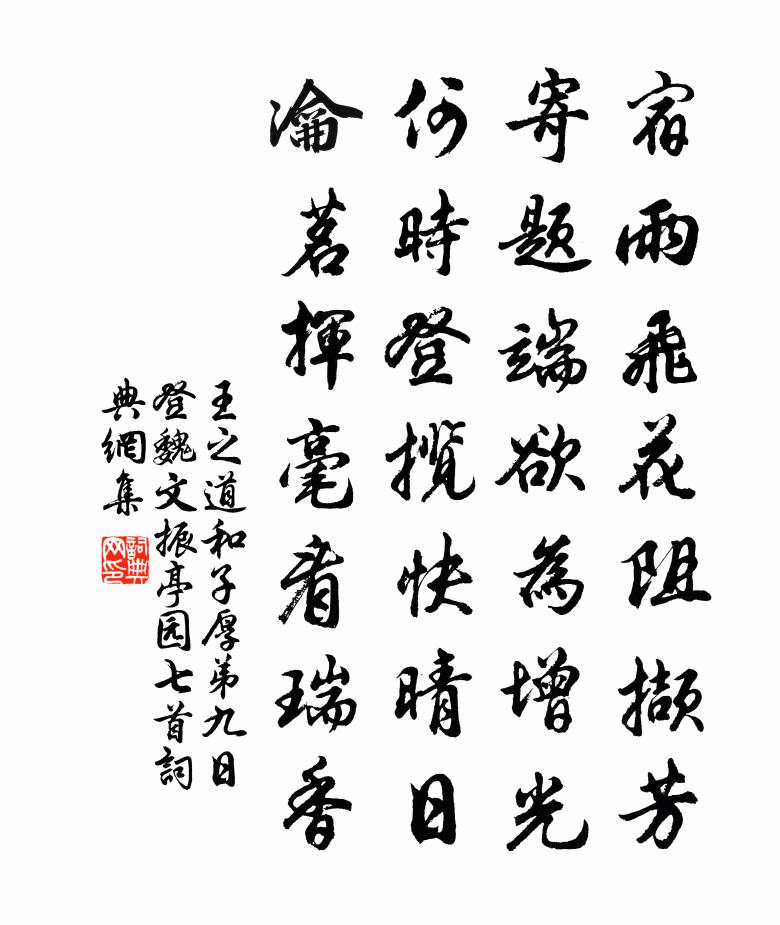 宿雨飛花阻擷芳
寄題端欲為增光
何時登攬快晴日
瀹茗揮毫看瑞香
王之道和子厚弟九日
登魏文振亭园七首詞
典網集
詞典網印